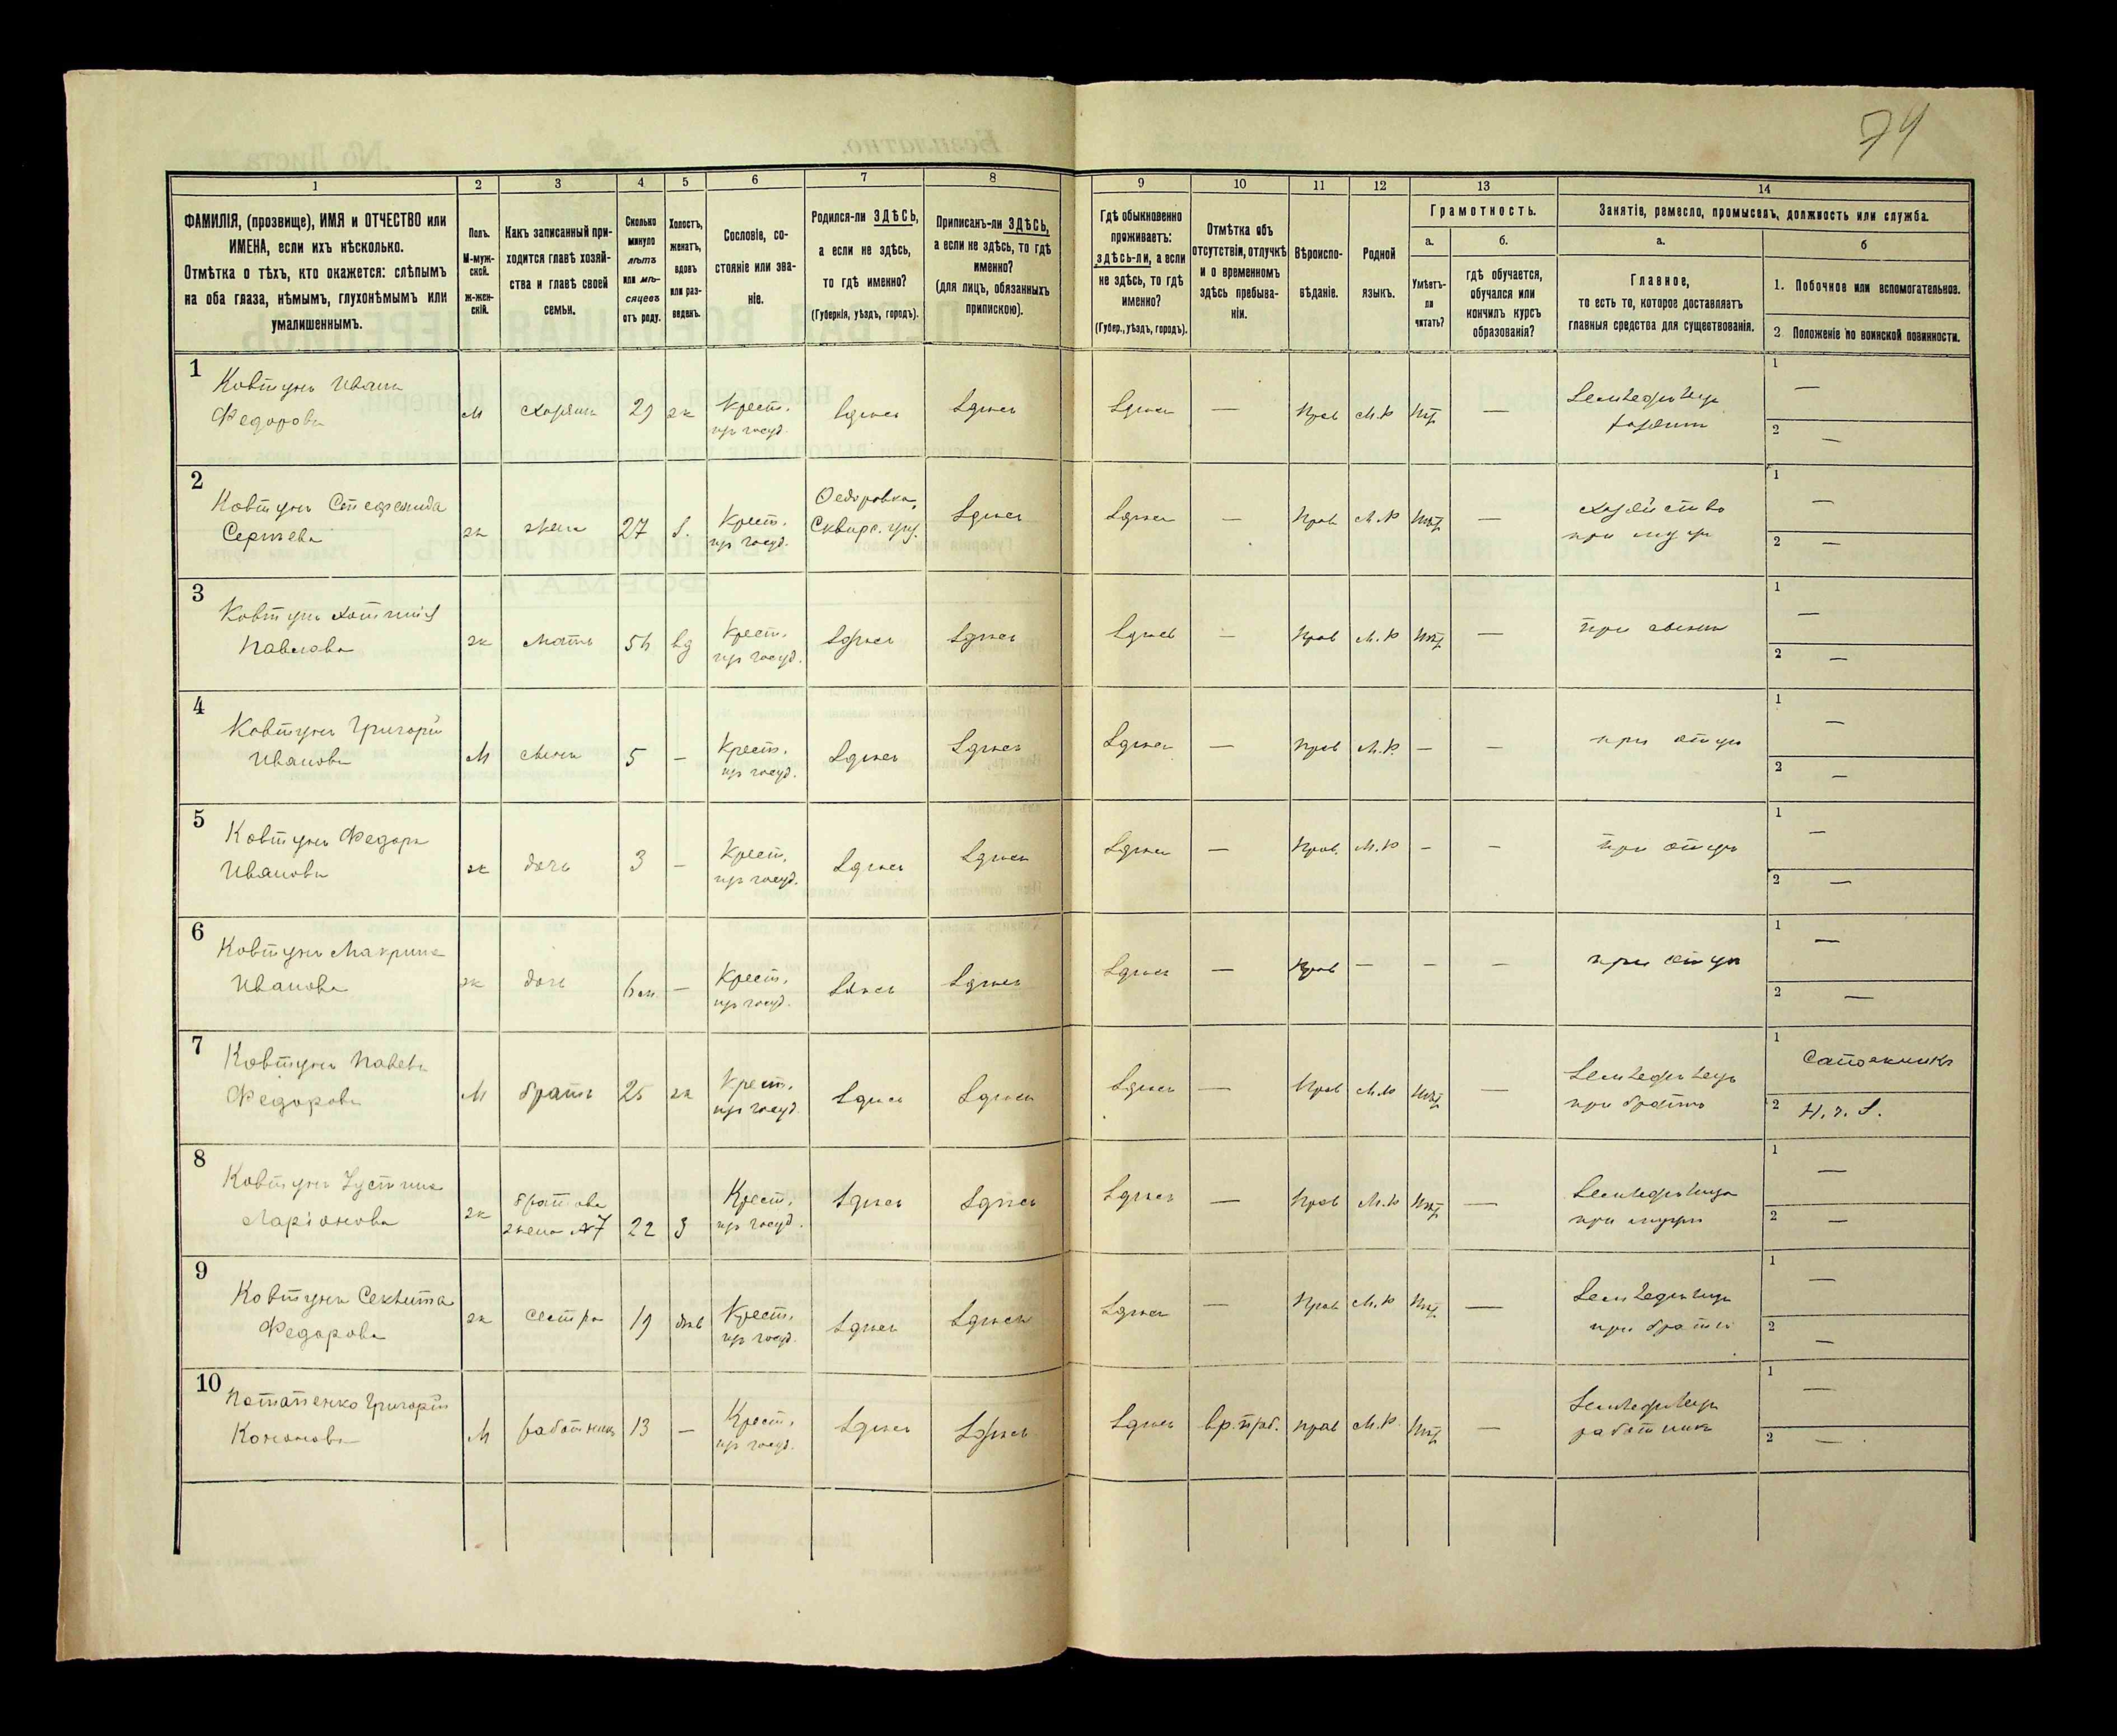 74
1 2 3 4 5 6 7 8 9 10 11 12 13 14
ФАМИЛІЯ, (прозвище), ИМЯ и ОТЧЕСТВО или
ИМЕНА, если ихъ нѣсколько.
Отмѣтка о тѣхъ, кто окажется: слѣпымъ
на оба глаза, нѣмымъ, глухонѣмымъ или
умалишеннымъ.
Полъ.
М-муж-
ской.
Ж-жен-
скій.
Какъ записанный при-
ходится главѣ хозяй-
ства и главѣ своей
семьи.
Сколько
минуло
лѣтъ
или мѣ-
сяцевъ
отъ роду.
Холостъ,
женатъ,
вдовъ
или раз-
веденъ.
Сословіе, со-
стояніе или зва-
ніе.
Родился-ли ЗДѢСЬ,
а если не здѣсь,
то гдѣ именно?
(Губернія, уѣздъ, городъ).
Приписанъ-ли ЗДѢСЬ,
а если не здѣсь, то гдѣ
именно?
(для лицъ, обязанныхъ
припискою).
Гдѣ обыкновенно
проживаетъ:
здѣсь-ли, а если
не здѣсь, то гдѣ
именно?
(Губер., уѣздъ, городъ).
Отмѣтка объ
отсутствіи, отлучкѣ
и о временномъ
здѣсь пребыва-
ніи.
Вѣроиспо-
вѣданіе.
Родной
языкъ.
Грамотность.
а.
Умѣетъ-
ли
читать?
б.
гдѣ обучается,
обучался или
кончилъ курсъ
образованія?
Занятіе, ремесло, промыселъ, должность или служба.
а.
Главное,
то есть то, которое доставляетъ
главныя средства для существованія.
б
1. Побочное или вспомогательное.
2 Положеніе по воинской повинности.
1
Ковтунъ Иванъ
Федоровъ
М хозяинъ 29 ж Крест. здѣсь здѣсь здѣсь — Прав М.Р нѣт — Земледѣлецъ 1 —
из госуд. хозяинъ 2 —
2
Ковтунъ Стефанида
Сергѣева
ж жена 27 з. Крест. Федоровка, здѣсь здѣсь — Прав М.Р нѣт — хозяйство 1 —
из госуд. Сквирс. уѣз. при мужѣ 2 —
3
Ковтунъ
Павлова
ж мать 56 вд Крест. здѣсь здѣсь здѣсь — Прав М.Р нѣт — при сынѣ 1 —
из госуд. 2 —
4
Ковтунъ Григорій
Ивановъ
М сынъ 5 — Крест. здѣсь здѣсь здѣсь — Прав М.Р. — — при отцѣ 1 —
из госуд. 2 —
5
Ковтунъ Федора
Иванова
ж дочь 3 — Крест. здѣсь здѣсь здѣсь — Прав. М.Р — — при отцѣ 1 —
из госуд. 2 —
6
Ковтунъ Макрина
Иванова
ж дочь 6 м. — Крест. здѣсь здѣсь здѣсь — Прав — — — при отцѣ 1 —
из госуд. 2 —
7
Ковтунъ Павелъ
Федоровъ
М братъ 25 ж Крест. здѣсь здѣсь здѣсь — Прав М.Р нѣт — Земледѣлецъ 1 Сапожникъ
из госуд. при братѣ 2
8
Ковтунъ Устина
Ларіонова
ж братова 22 з Крест. здѣсь здѣсь здѣсь — Прав М.Р нѣт — Земледѣлица 1 —
жена №7 из госуд. при мужѣ 2 —
9
Ковтунъ Секлита
Федорова
ж сестра 19 дѣв Крест. здѣсь здѣсь здѣсь — Прав М.Р нѣт — Земледѣлица 1 —
из госуд. при братѣ 2 —
10
Потапенко Григорій
Кононовъ
М работникъ 13 — Крест. здѣсь здѣсь здѣсь вр. преб. прав М.Р. нѣт — Земледѣлецъ 1 —
из госуд. работникъ 2 —